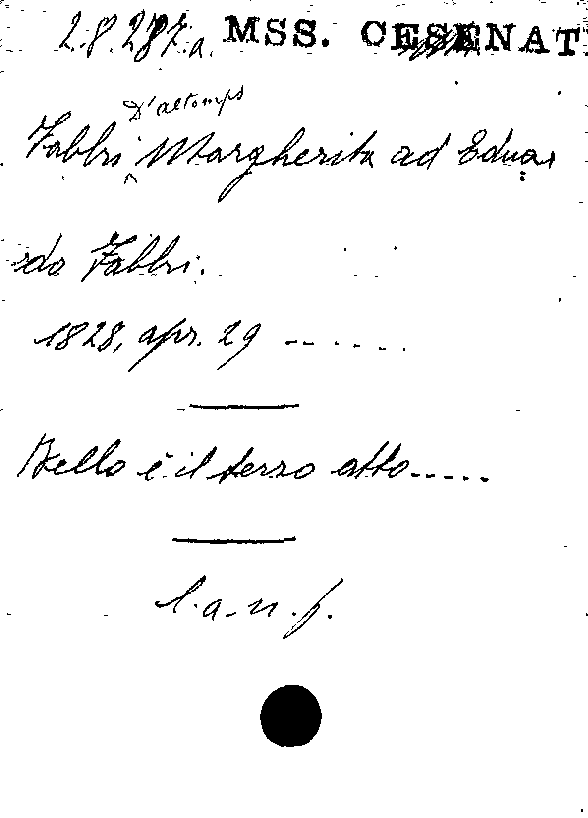 2.8.287.a. MSS. CESENAT
D'altemps
Fabbri Margherita ad Eduar
do Fabbri.
1828, apr. 29 ------
Bello è il terzo atto.....
l.a.n.f.